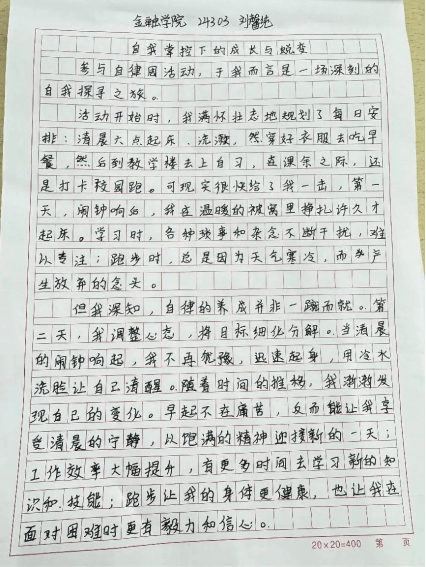 金融学院 24303 刘馨纯
自我掌控下的成长与蜕变
参与自律周活动，于我而言是一场深刻的
自我探寻之旅。
活动开始时，我满怀壮志地规划了每日安
排：清晨六点起床、洗漱，然穿好衣服去吃早
餐，然后到教学楼去上自习，在课余之际，还
是打卡校园跑。可现实很快给了我一击，第一
天，闹钟响后，我在温暖的被窝里挣扎许久才
起床。学习时，各种琐事和杂念不断干扰，难
以专注；跑步时，总是因为天气寒冷，而产
生放弃的念头。
但我深知，自律的养成并非一蹴而就。第
二天，我调整心态，将目标细化分解。当清晨
的闹钟响起，我不再犹豫，迅速起身，用冷水
洗脸让自己清醒。随着时间的推移，我渐渐发
现自己的变化。早起不在痛苦，反而能让我享
受清晨的宁静，以饱满的精神迎接新的一天；
工作效率大幅提升，有更多时间去学习新的知
识和技能；跑步让我的身体更健康，也让我在
面对困难时更有毅力和信心。
20×20=400 第 页